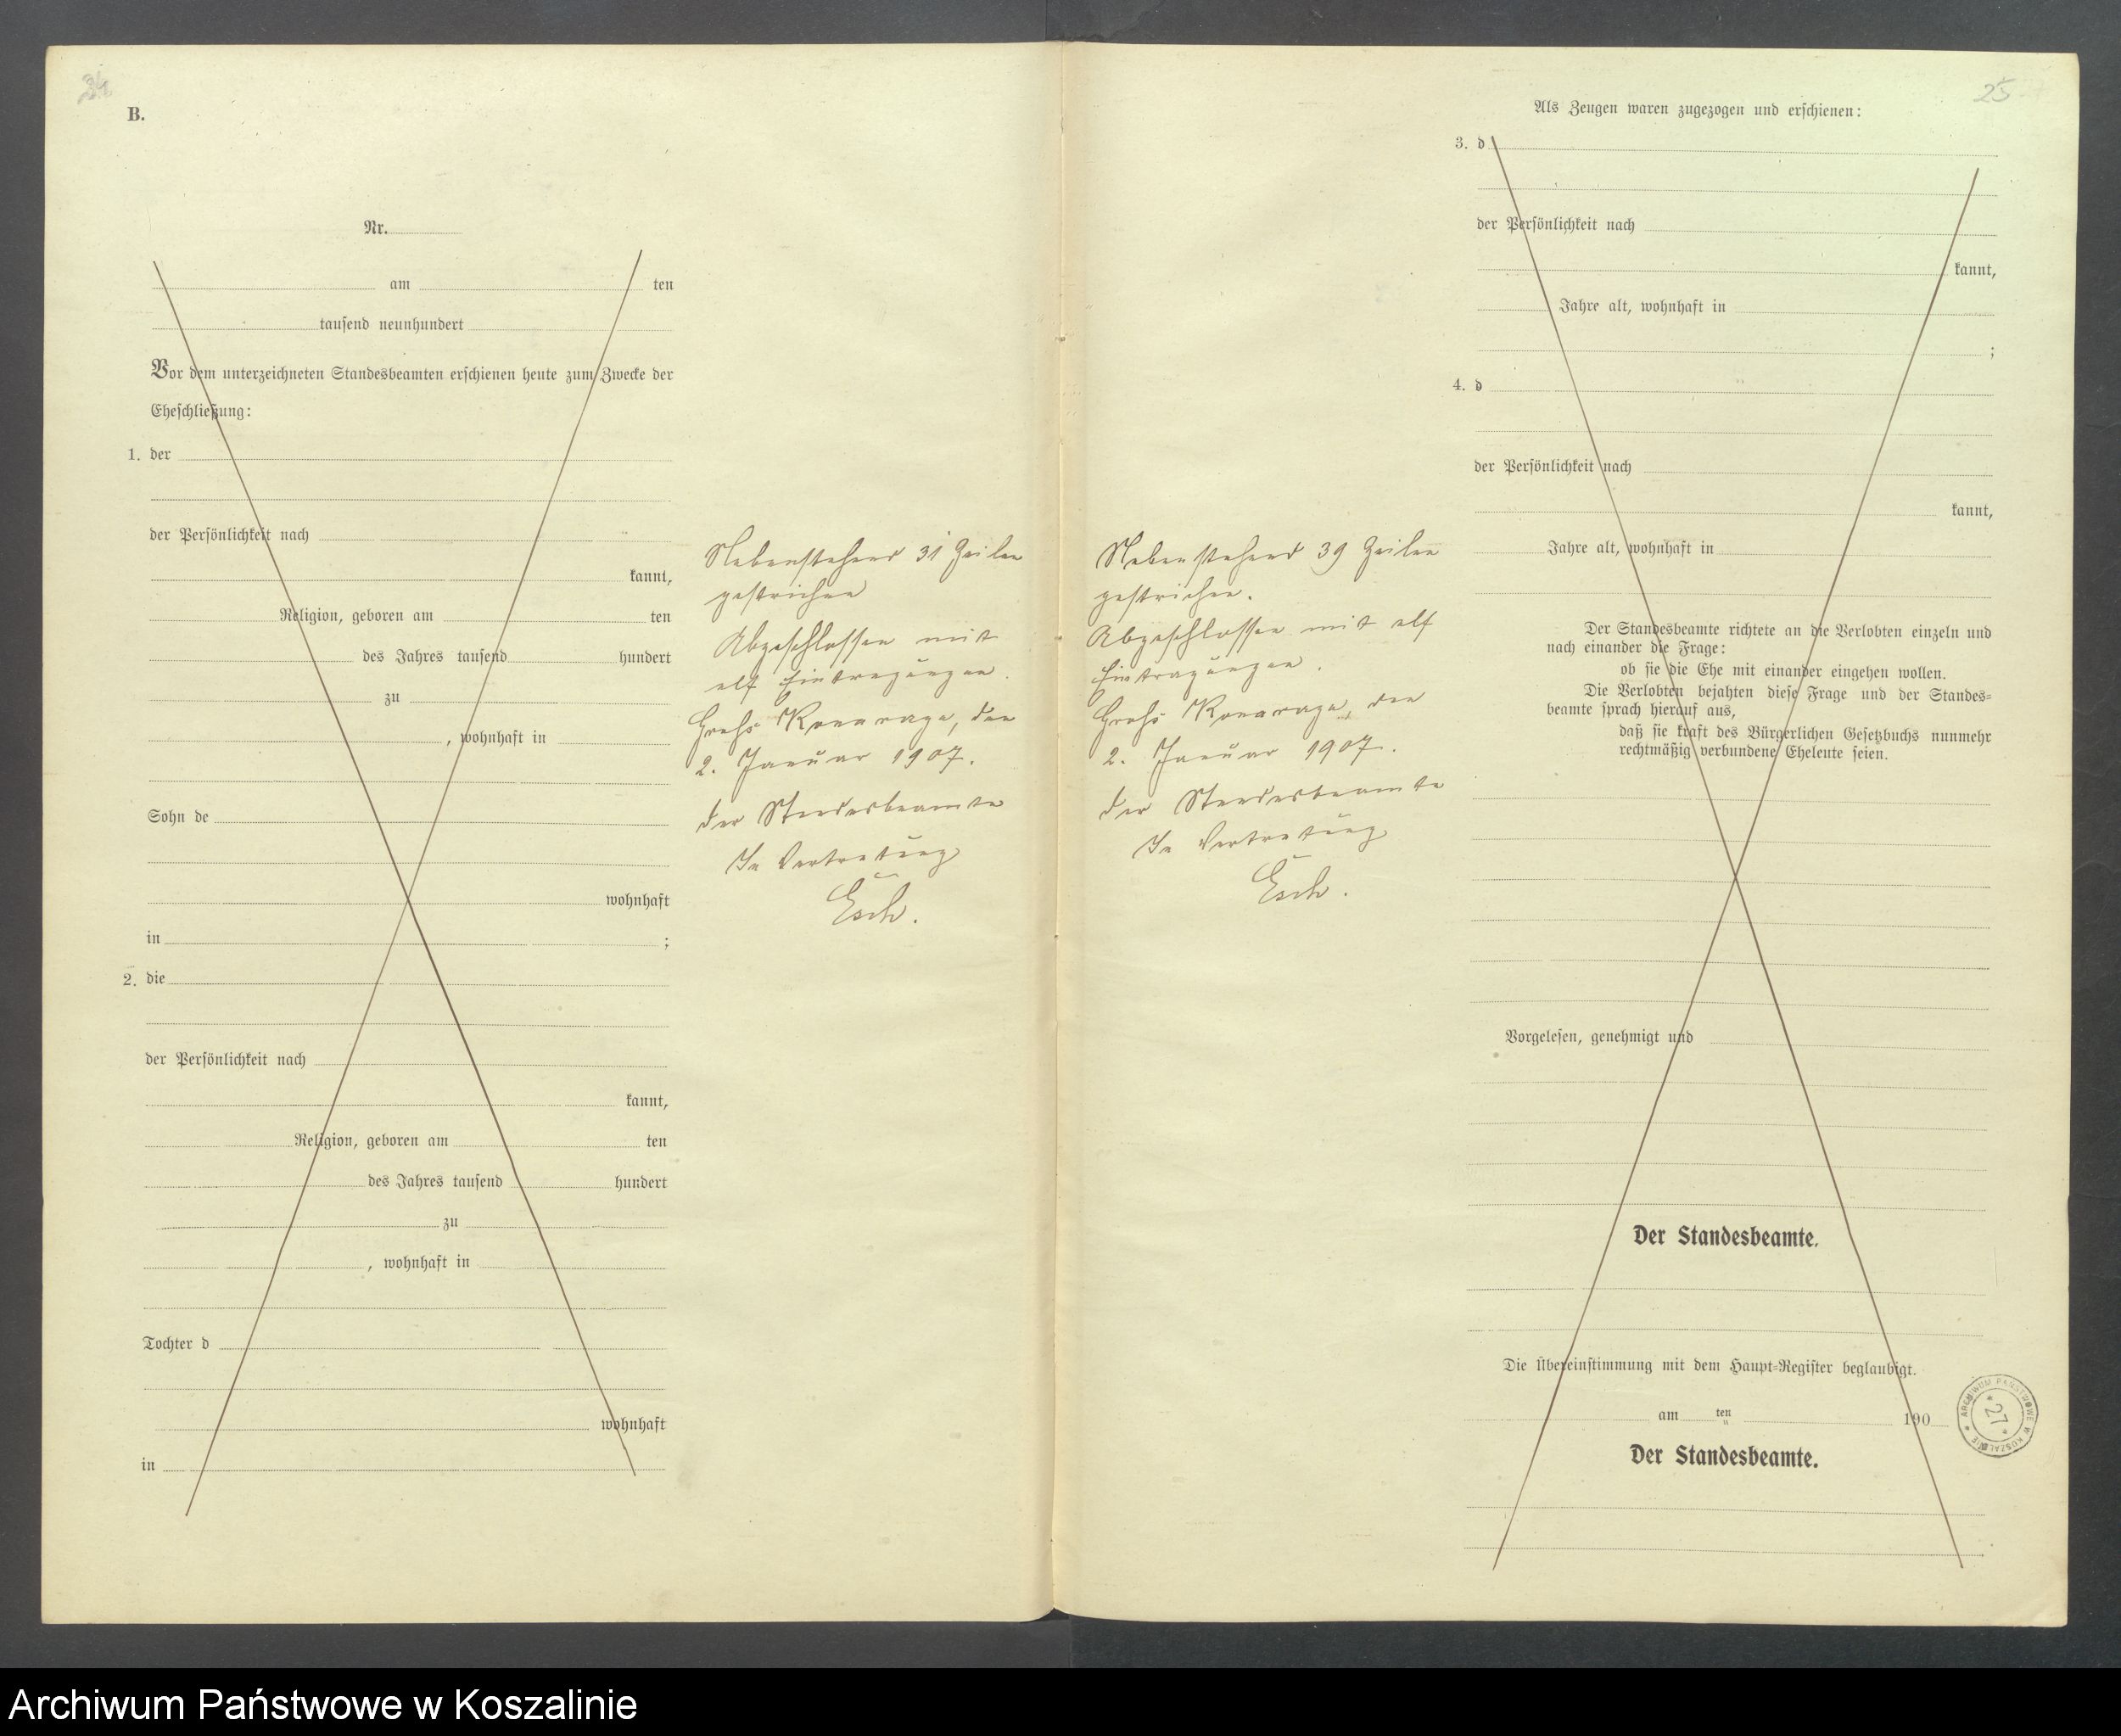 B.
Nr.
am ten
tausend neunhundert
Vor dem unterzeichneten Standesbeamten erschienen heute zum Zwecke der
Eheschließung:
1. der
der Persönlichkeit nach
kannt,
Religion, geboren am ten
des Jahres tausend hundert
zu
, wohnhaft in
Sohn de
wohnhaft
in ;
2. die
der Persönlichkeit nach
kannt,
Religion, geboren am ten
des Jahres tausend hundert
zu
, wohnhaft in
Tochter d
wohnhaft
in
Nebenstehend 31 Zeilen
gestrichen
Abgeschlossen mit
elf Eintragungen.
Groß, den
2. Januar 1907.
Der Standesbeamte
In Vertretung
Esch.
Nebenstehend 39 Zeilen
gestrichen.
Abgeschlossen mit elf
Eintragungen.
Groß, den
2. Januar 1907.
Der Standesbeamte
In Vertretung
Esch.
25
Als Zeugen waren zugezogen und erschienen:
3. d
der Persönlichkeit nach
kannt,
Jahre alt, wohnhaft in
;
4. d
der Persönlichkeit nach
kannt,
Jahre alt, wohnhaft in
Der Standesbeamte richtete an die Verlobten einzeln und
nach einander die Frage:
ob sie die Ehe mit einander eingehen wollen.
Die Verlobten bejahten diese Frage und der Standes-
beamte sprach hierauf aus,
daß sie kraft des Bürgerlichen Gesetzbuchs nunmehr
rechtmäßig verbundene Eheleute seien.
Vorgelesen, genehmigt und
Der Standesbeamte.
Die Übereinstimmung mit dem Haupt-Register beglaubigt.
am ten 190
Der Standesbeamte.
ARCHIWUM PAŃSTWOWE W KOSZALINIE
* 27 *
Archiwum Państwowe w Koszalinie